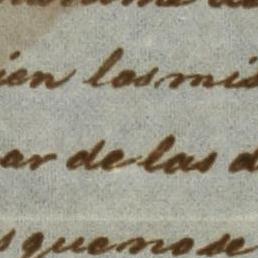 ien los mis
ar de las d
s que no se